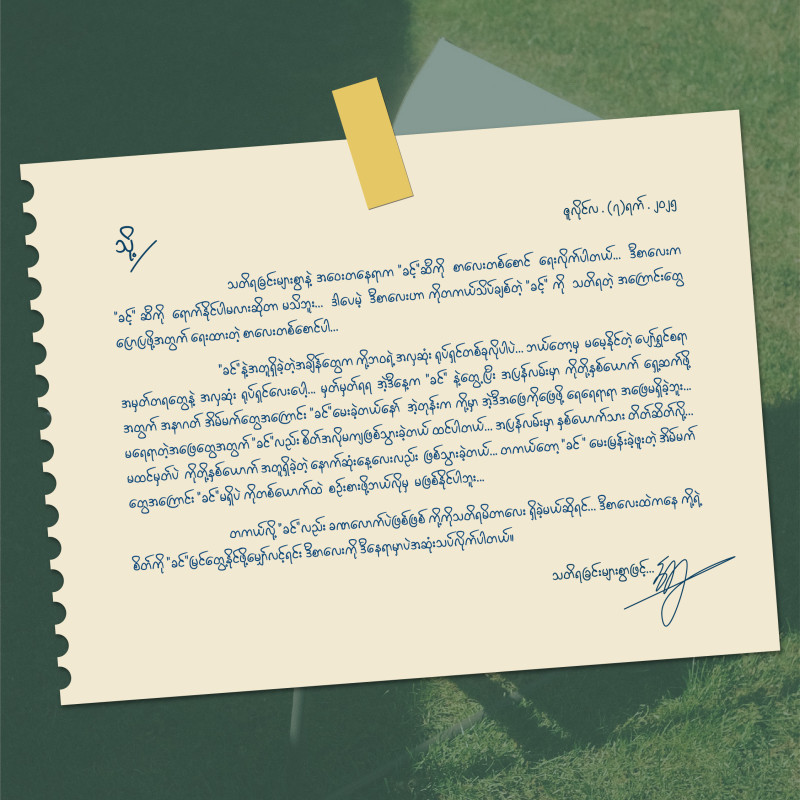 ဇူလိုင်လ . (၇)ရက် . ၂၀၂၅
သို့
သတိရခြင်းများစွာနဲ့ အဝေးတနေရာက "ခင့်"ဆီကို စာလေးတစ်စောင် ရေးလိုက်ပါတယ်... ဒီစာလေးက
"ခင့်" ဆီကို ရောက်နိုင်ပါမလားဆိုတာ မသိဘူး... ဒါပေမဲ့ ဒီစာလေးဟာ ကိုတကယ်သိပ်ချစ်တဲ့ "ခင့်" ကို သတိရတဲ့ အကြောင်းတွေ
ပြောပြဖို့အတွက် ရေးထားတဲ့ စာလေးတစ်စောင်ပါ...
"ခင်"နဲ့အတူရှိခဲ့တဲ့အချိန်တွေက ကို့ဘဝရဲ့ အလှဆုံး ရုပ်ရှင်တစ်ခုလိုပါပဲ... ဘယ်တော့မှ မမေ့နိုင်တဲ့ ပျော်ရွှင်စရာ
အမှတ်တရတွေနဲ့ အလှဆုံး ရုပ်ရှင်လေးပေါ့... မှတ်မှတ်ရရ အဲ့ဒီနေ့က "ခင်" နဲ့တွေ့ပြီး အပြန်လမ်းမှာ ကိုတို့နှစ်ယောက် ရှေ့ဆက်ဖို့
အတွက် အနာဂတ် အိမ်မက်တွေအကြောင်း "ခင်"မေးခဲ့တယ်နော် အဲ့တုန်းက ကို့မှာ အဲ့ဒီအဖြေကိုဖြေဖို့ ရေရေရာရာ အဖြေမရှိခဲ့ဘူး...
မရေရာတဲ့အဖြေတွေအတွက် "ခင်"လည်း စိတ်အလိုမကျဖြစ်သွားခဲ့တယ် ထင်ပါတယ်... အပြန်လမ်းမှာ နှစ်ယောက်သား တိတ်ဆိတ်လို့...
မထင်မှတ်ပဲ ကိုတို့နှစ်ယောက် အတူရှိခဲ့တဲ့ နောက်ဆုံးနေ့လေးလည်း ဖြစ်သွားခဲ့တယ်... တကယ်တော့ "ခင်" မေးမြန်းခဲ့ဖူးတဲ့ အိမ်မက်
တွေအကြောင်း "ခင်"မရှိပဲ ကိုတစ်ယောက်ထဲ စဉ်းစားဖို့ဘယ်လိုမှ မဖြစ်နိုင်ပါဘူး...
တကယ်လို့ "ခင်"လည်း ခဏလောက်ပဲဖြစ်ဖြစ် ကို့ကိုသတိရမိတာလေး ရှိခဲ့မယ်ဆိုရင်... ဒီစာလေးထဲကနေ ကို့ရဲ့
စိတ်ကို "ခင်"မြင်တွေ့နိုင်ဖို့မျှော်လင့်ရင်း ဒီစာလေးကို ဒီနေရာမှာပဲအဆုံးသပ်လိုက်ပါတယ်။
သတိရခြင်းများစွာဖြင့်...